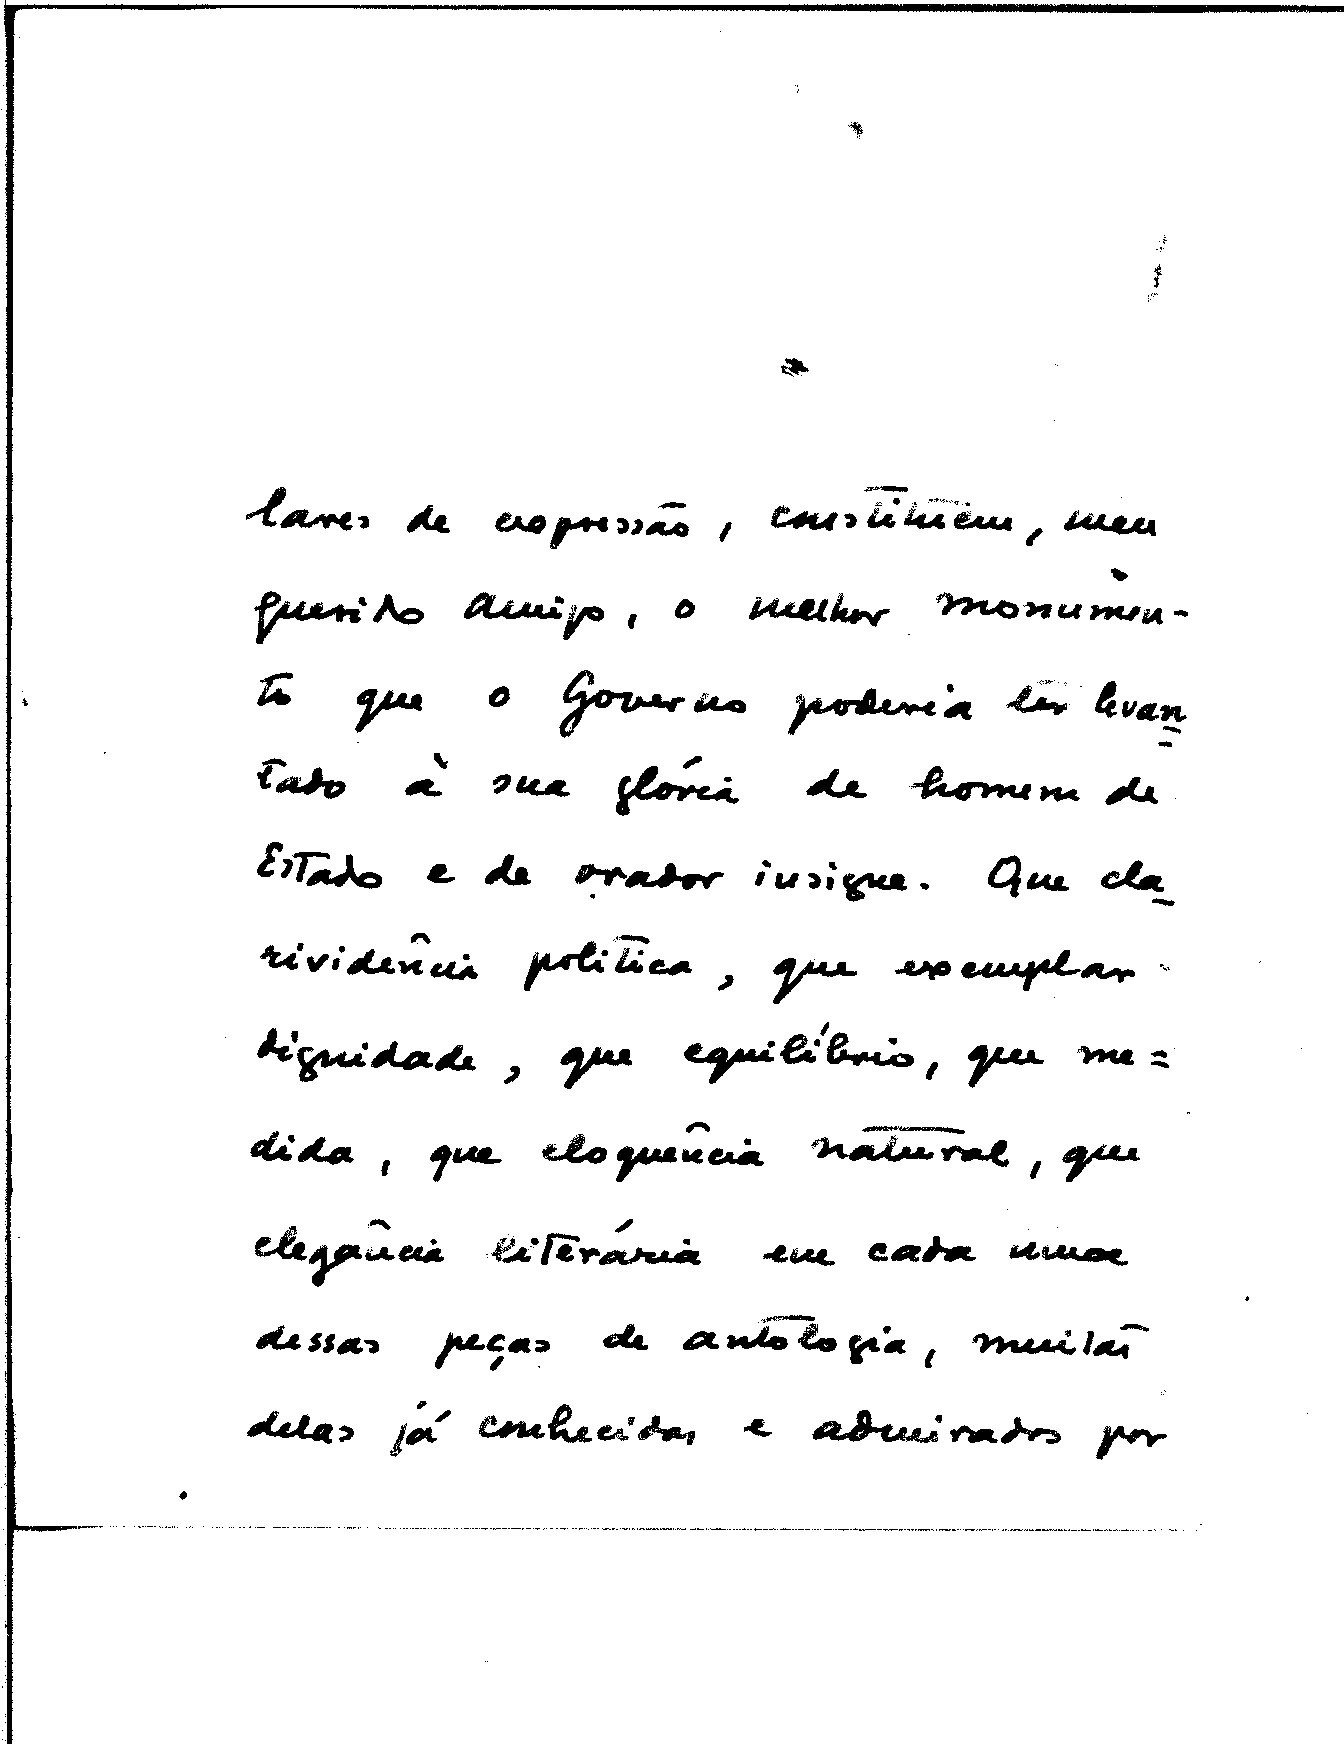 lares de expressão, constituem, meu
querido amigo, o melhor monumen-
to que o Governo poderia ter levan
tado à sua glória de homem de
Estado e de orador insigne. Que cla
rividência politica, que exemplar
dignidade, que equilíbrio, que me=
dida, que eloquência natural, que
elegância literária em cada uma
dessas peças de antologia, muitas
delas já conhecidas e admiradas por